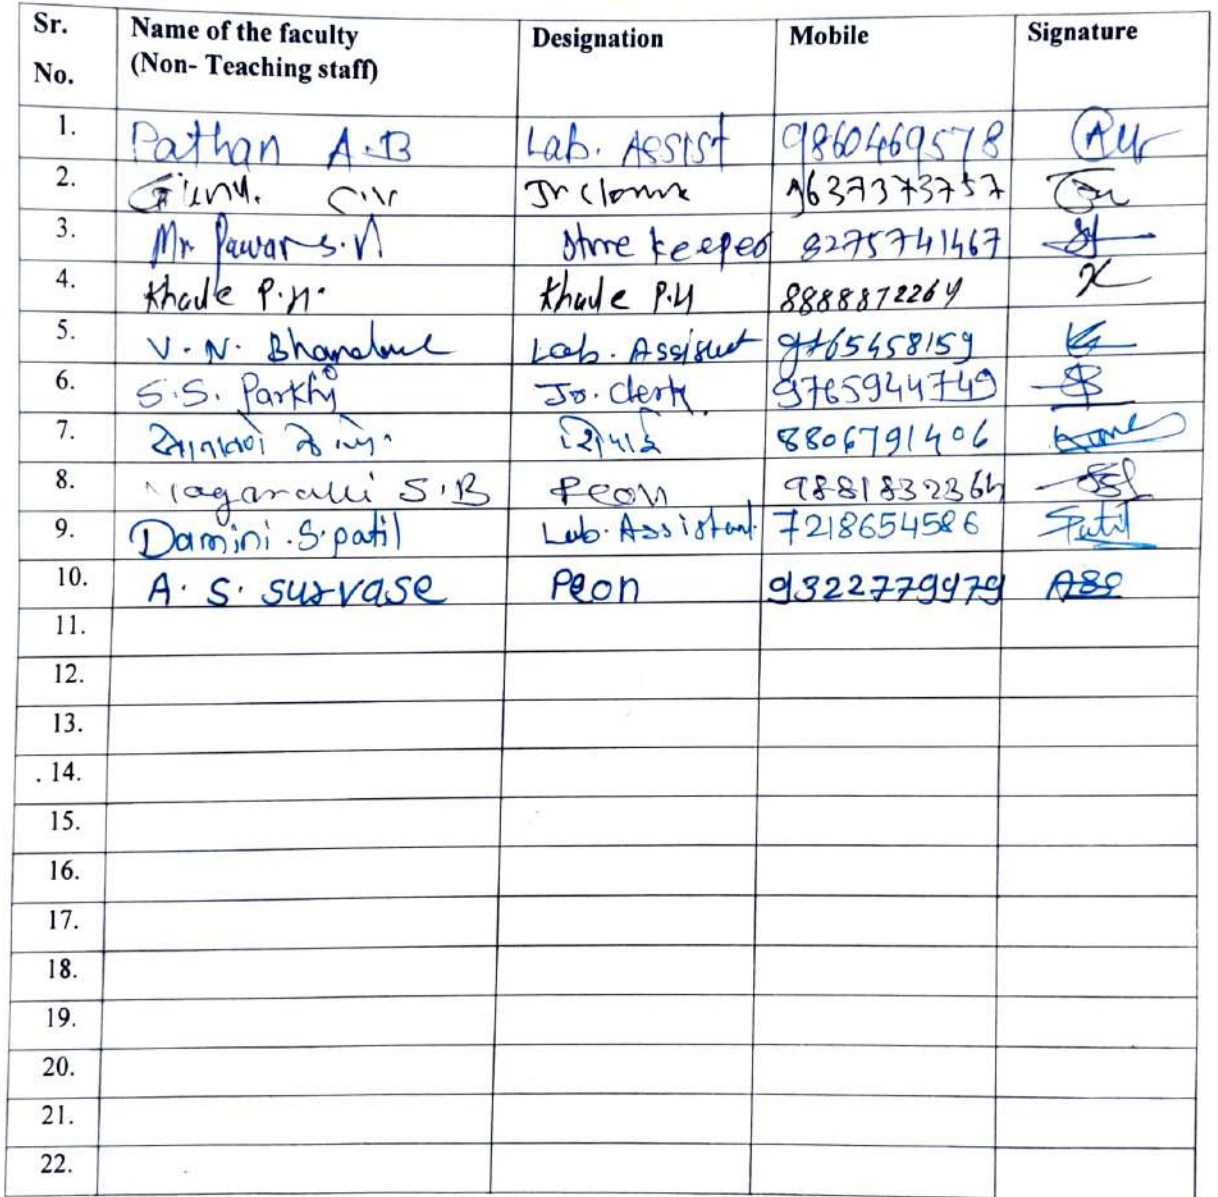 Sr. No. Name of the faculty (Non- Teaching staff) Designation Mobile Signature
1. Pathan A.B Lab. Assist 9860469578
2. 9637373757
3. Mr. Pawar S.N Store keeper 8275741467
4. Khade P.N. Khade P.N 8888872264
5. V. N. Lab. Assistant 9765458159
6. S.S. Parkhy Jr. Clerk 9765944749
7. शिपाई 8806791406
8. S.B Peon
9. Damini .S. patil Lab. Assistant. 7218654586 Patil
10. A. S. survase Peon 9322779979 ASS
11.
12.
13.
14.
15.
16.
17.
18.
19.
20.
21.
22.